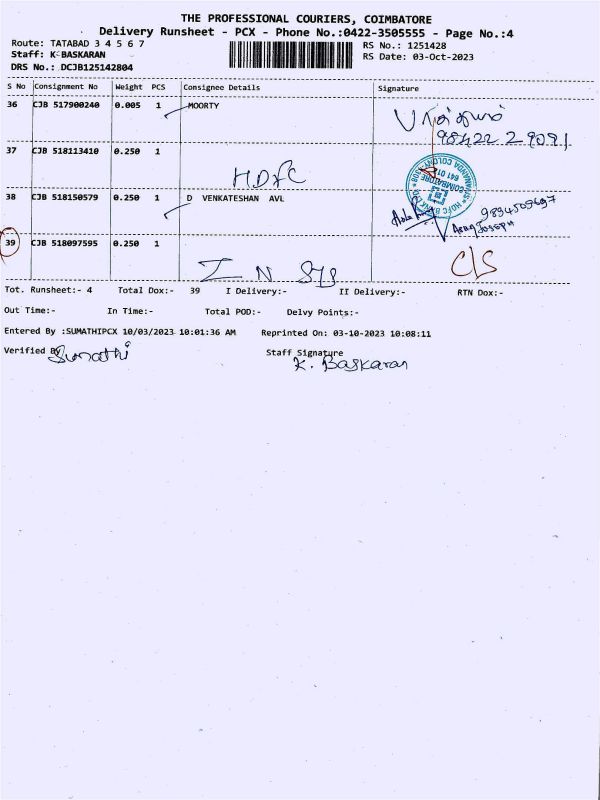 THE PROFESSIONAL COURIERS, COIMBATORE
Delivery Runsheet - PCX - Phone No.:0422-3505555 - Page No.:4
Route: TATABAD 3 4 5 6 7
RS No.: 1251428
Staff: K-BASKARAN
RS Date: 03-Oct-2023
DRS No.: DCJB125142804
S No Consignment No Weight PCS Consignee Details Signature
36 CJB 517900240 0.005 1 MOORTY
98422 29091
37 CJB 518113410 0.250 1
HDFC
38 CJB 518150579 0.250 1 D VENKATESHAN AVL
9894509697
39 CJB 518097595 0.250 1
CLS
Tot. Runsheet:- 4 Total Dox:- 39 I Delivery:- II Delivery:- RTN Dox:-
Out Time:- In Time:- Total POD:- Delvy Points:-
Entered By :SUMATHIPCX 10/03/2023 10:01:36 AM Reprinted On: 03-10-2023 10:08:11
Verified By Sumathi
Staff Signature
K. Baskaran